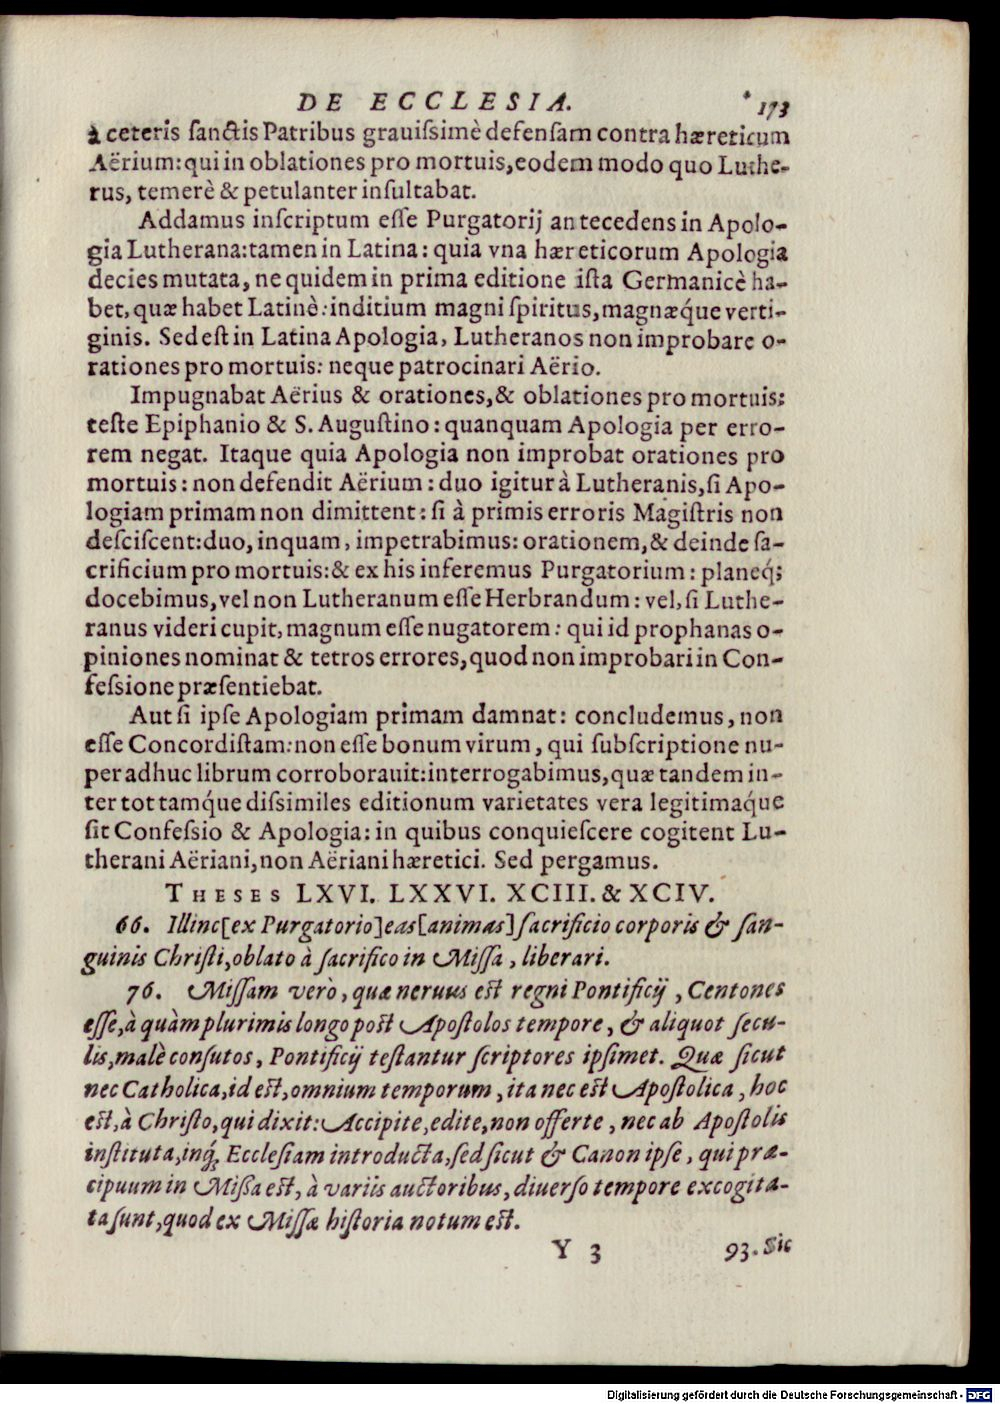 DE ECCLESIA. 173
à ceteris sanctis Patribus grauissimè defensam contra hæreticum
Aërium: qui in oblationes pro mortuis, eodem modo quo Luthe-
rus, temerè & petulanter insultabat.
Addamus inscriptum esse Purgatorij antecedens in Apolo-
gia Lutherana: tamen in Latina: quia vna hæreticorum Apologia
decies mutata, ne quidem in prima editione ista Germanicè ha-
bet, quæ habet Latinè: inditium magni spiritus, magnæq́ue verti-
ginis. Sed est in Latina Apologia, Lutheranos non improbare o-
rationes pro mortuis: neque patrocinari Aërio.
Impugnabat Aërius & orationes, & oblationes pro mortuis:
teste Epiphanio & S. Augustino: quanquam Apologia per erro-
rem negat. Itaque quia Apologia non improbat orationes pro
mortuis: non defendit Aërium: duo igitur à Lutheranis, si Apo-
logiam primam non dimittent: si à primis erroris Magistris non
desciscent: duo, inquam, impetrabimus: orationem, & deinde sa-
crificium pro mortuis: & ex his inferemus Purgatorium: planeq́;
docebimus, vel non Lutheranum esse Herbrandum: vel, si Luthe-
ranus videri cupit, magnum esse nugatorem: qui id prophanas o-
piniones nominat & tetros errores, quod non improbari in Con-
fessione præsentiebat.
Aut si ipse Apologiam primam damnat: concludemus, non
esse Concordistam: non esse bonum virum, qui subscriptione nu-
per adhuc librum corroborauit: interrogabimus, quæ tandem in-
ter tot tamq́ue dissimiles editionum varietates vera legitimaq́ue
sit Confessio & Apologia: in quibus conquiescere cogitent Lu-
therani Aëriani, non Aëriani hæretici. Sed pergamus.
THESES LXVI. LXXVI. XCIII. & XCIV.
66. Illinc [ex Purgatorio] eas [animas] sacrificio corporis & san-
guinis Christi, oblato à sacrifico in Missa, liberari.
76. Missam verò, quæ neruus est regni Pontificij, Centones
esse, à quàm plurimis longo post Apostolos tempore, & aliquot secu-
lis, malè consutos, Pontificij testantur scriptores ipsimet. Quæ sicut
nec Catholica, id est, omnium temporum, ita nec est Apostolica, hoc
est, à Christo, qui dixit: Accipite, edite, non offerte, nec ab Apostolis
instituta, inq́; Ecclesiam introducta, sed sicut & Canon ipse, qui præ-
cipuum in Missa est, à variis auctoribus, diuerso tempore excogita-
ta sunt, quod ex Missæ historia notum est.
Y 3 93. Sic
Digitalisierung gefördert durch die Deutsche Forschungsgemeinschaft - DFG